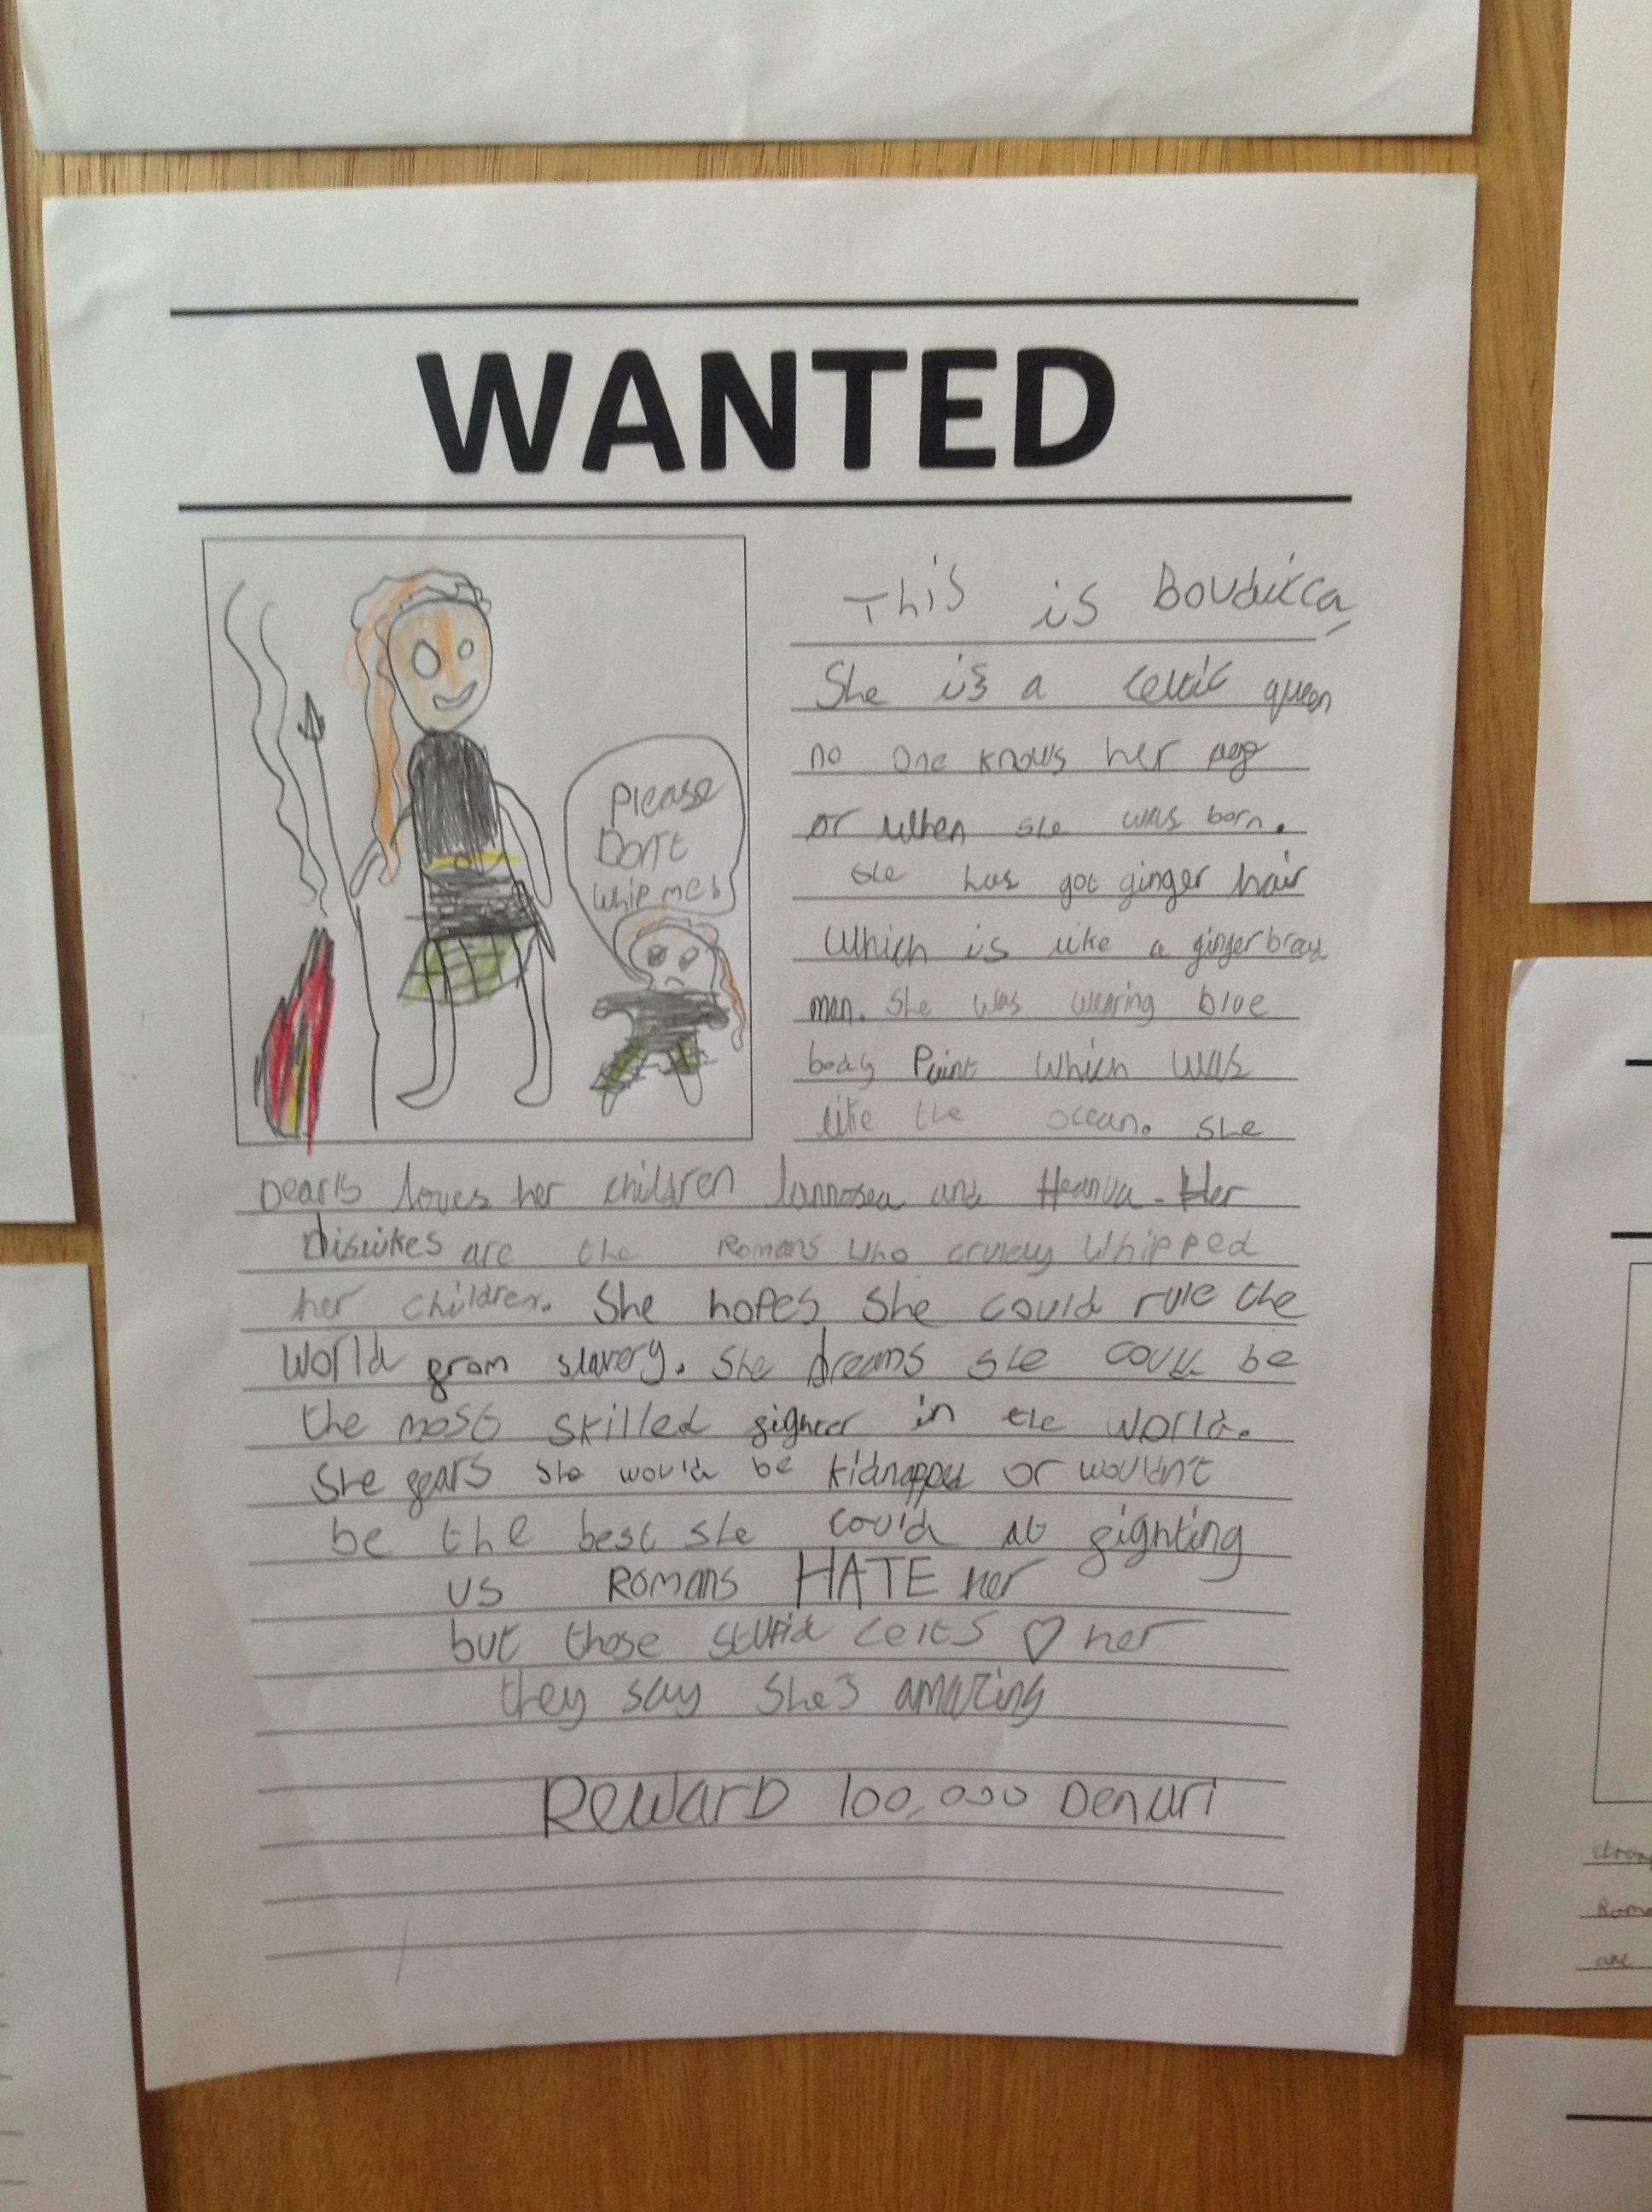 WANTED
Please
Don't
whip me!
This is Boudicca
She is a celtic queen
no one knows her age
or when she was born.
she has got ginger hair
which is like a ginger bread
man. She was wearing blue
body Paint which was
like the ocean. she
Dearly loves her children lannosea and Heanua. Her
Dislikes are the Romans who cruely whipped
her children. She hopes she could rule the
world from slavery. She dreams she could be
the most skilled fighter in the world.
She fears she would be kidnapped or wouldn't
be the best she could at fighting
us Romans HATE her
but those stupid celts ♡ her
they say she's amazing
Reward 100,000 Denari
strong
Roma
are